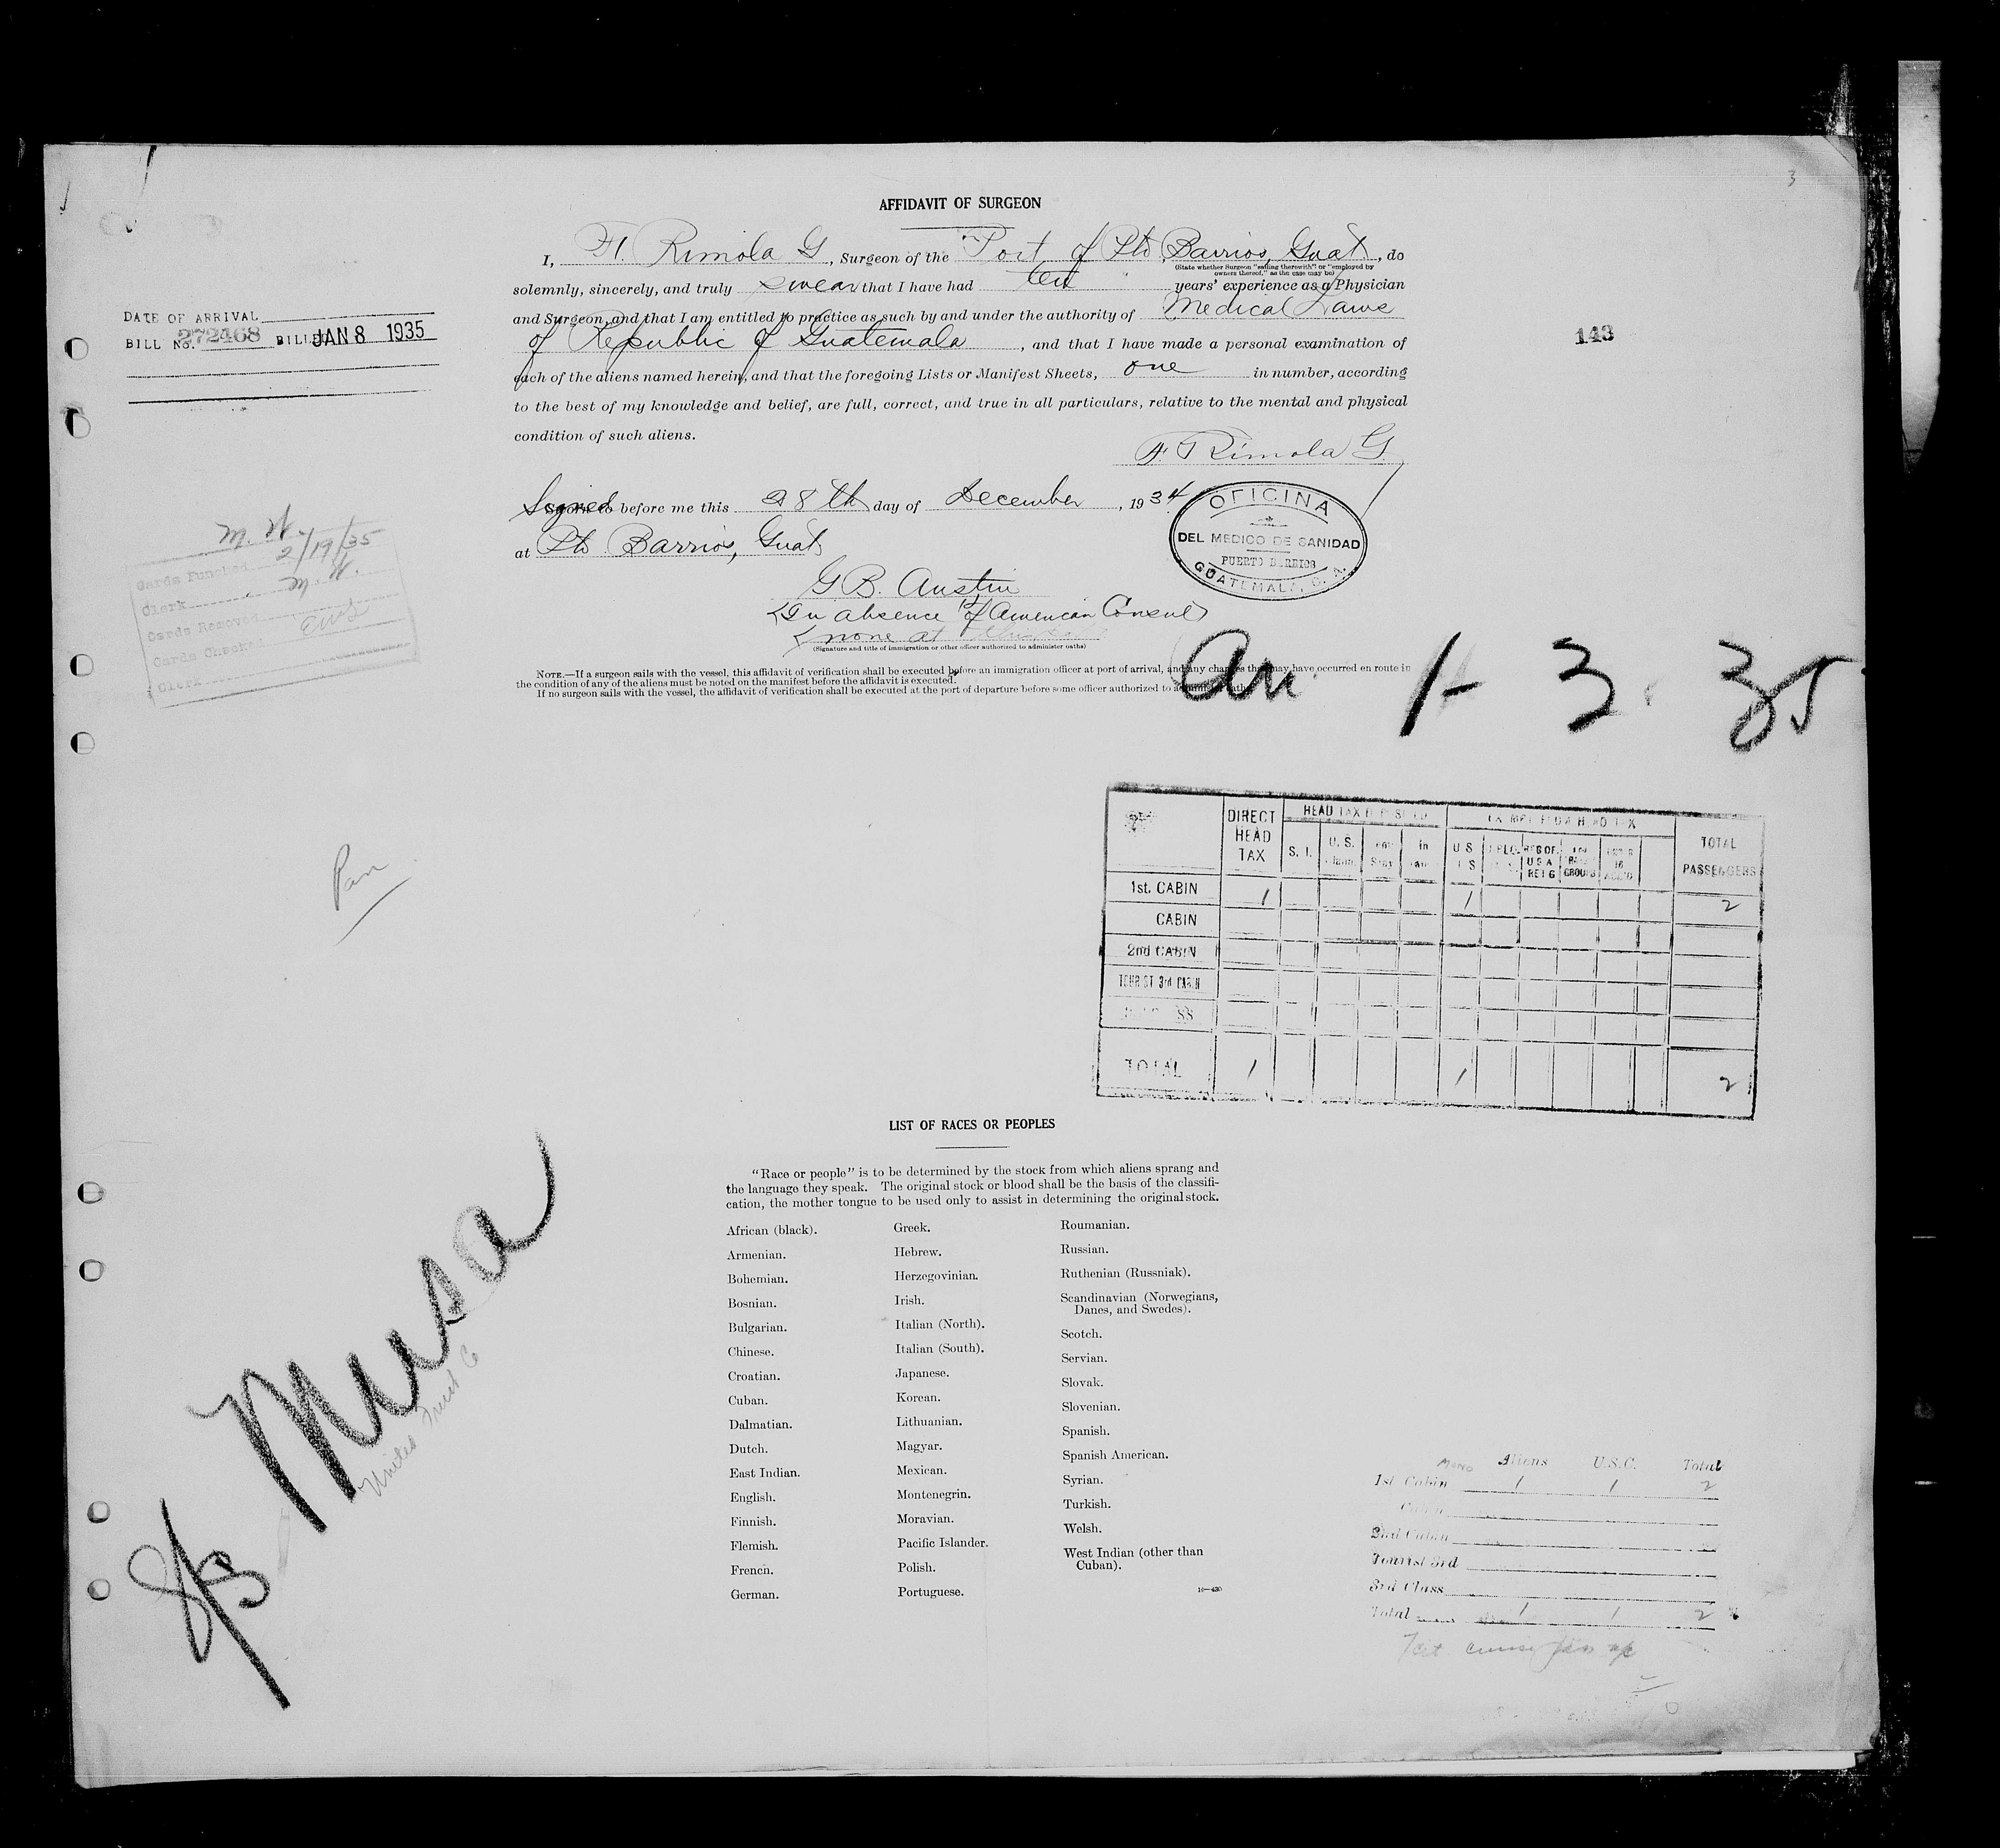 3
AFFIDAVIT OF SURGEON
I, F. Rimola G, Surgeon of the Port of Pto Barrios, Guat, do
(State whether Surgeon "sailing therewith" or "employed by
owners thereof," as the case may be)
solemnly, sincerely, and truly swear that I have had ten years' experience as a Physician
and Surgeon, and that I am entitled to practice as such by and under the authority of Medical Laws
of Republic of Guatemala, and that I have made a personal examination of
each of the aliens named herein, and that the foregoing Lists or Manifest Sheets, one in number, according
to the best of my knowledge and belief, are full, correct, and true in all particulars, relative to the mental and physical
condition of such aliens.
F. Rimola G.
DATE OF ARRIVAL
BILL No. 272468 BILLED JAN 8 1935
143
Signed before me this 28th day of December, 1934
at Pto Barrios, Guat
OFICINA
DEL MEDICO DE SANIDAD
PUERTO BARRIOS
GUATEMALA, C. A.
G B. Austin
(In absence of American Consul)
(none at
(Signature and title of immigration or other officer authorized to administer oaths)
M. W.
Cards Punched 2/19/35
Clerk M. W.
Cards Removed
Cards Checked EWS
Clerk
NOTE.—If a surgeon sails with the vessel, this affidavit of verification shall be executed before an immigration officer at port of arrival, and any changes that may have occurred en route in
the condition of any of the aliens must be noted on the manifest before the affidavit is executed.
If no surgeon sails with the vessel, the affidavit of verification shall be executed at the port of departure before some officer authorized to administer oaths.
Arr 1-3.35
DIRECT HEAD TAX
HEAD TAX
S. I.
U. S.
HEAD TAX
U S
REG OF.
U S A
GROUPS
TOTAL PASSENGERS
1st. CABIN 1 1 2
CABIN
2nd CABIN
TOURIST 3rd CABIN
TOTAL 1 1 2
LIST OF RACES OR PEOPLES
"Race or people" is to be determined by the stock from which aliens sprang and
the language they speak. The original stock or blood shall be the basis of the classifi-
cation, the mother tongue to be used only to assist in determining the original stock.
African (black).
Armenian.
Bohemian.
Bosnian.
Bulgarian.
Chinese.
Croatian.
Cuban.
Dalmatian.
Dutch.
East Indian.
English.
Finnish.
Flemish.
French.
German.
Greek.
Hebrew.
Herzegovinian.
Irish.
Italian (North).
Italian (South).
Japanese.
Korean.
Lithuanian.
Magyar.
Mexican.
Montenegrin.
Moravian.
Pacific Islander.
Polish.
Portuguese.
Roumanian.
Russian.
Ruthenian (Russniak).
Scandinavian (Norwegians,
Danes, and Swedes).
Scotch.
Servian.
Slovak.
Slovenian.
Spanish.
Spanish American.
Syrian.
Turkish.
Welsh.
West Indian (other than
Cuban).
S/S Musa
United Fruit Co
Aliens U.S.C. Total
1st Cabin 1 1 2
Cabin
2nd Cabin
Tourist 3rd
3rd Class
Total 1 1 2